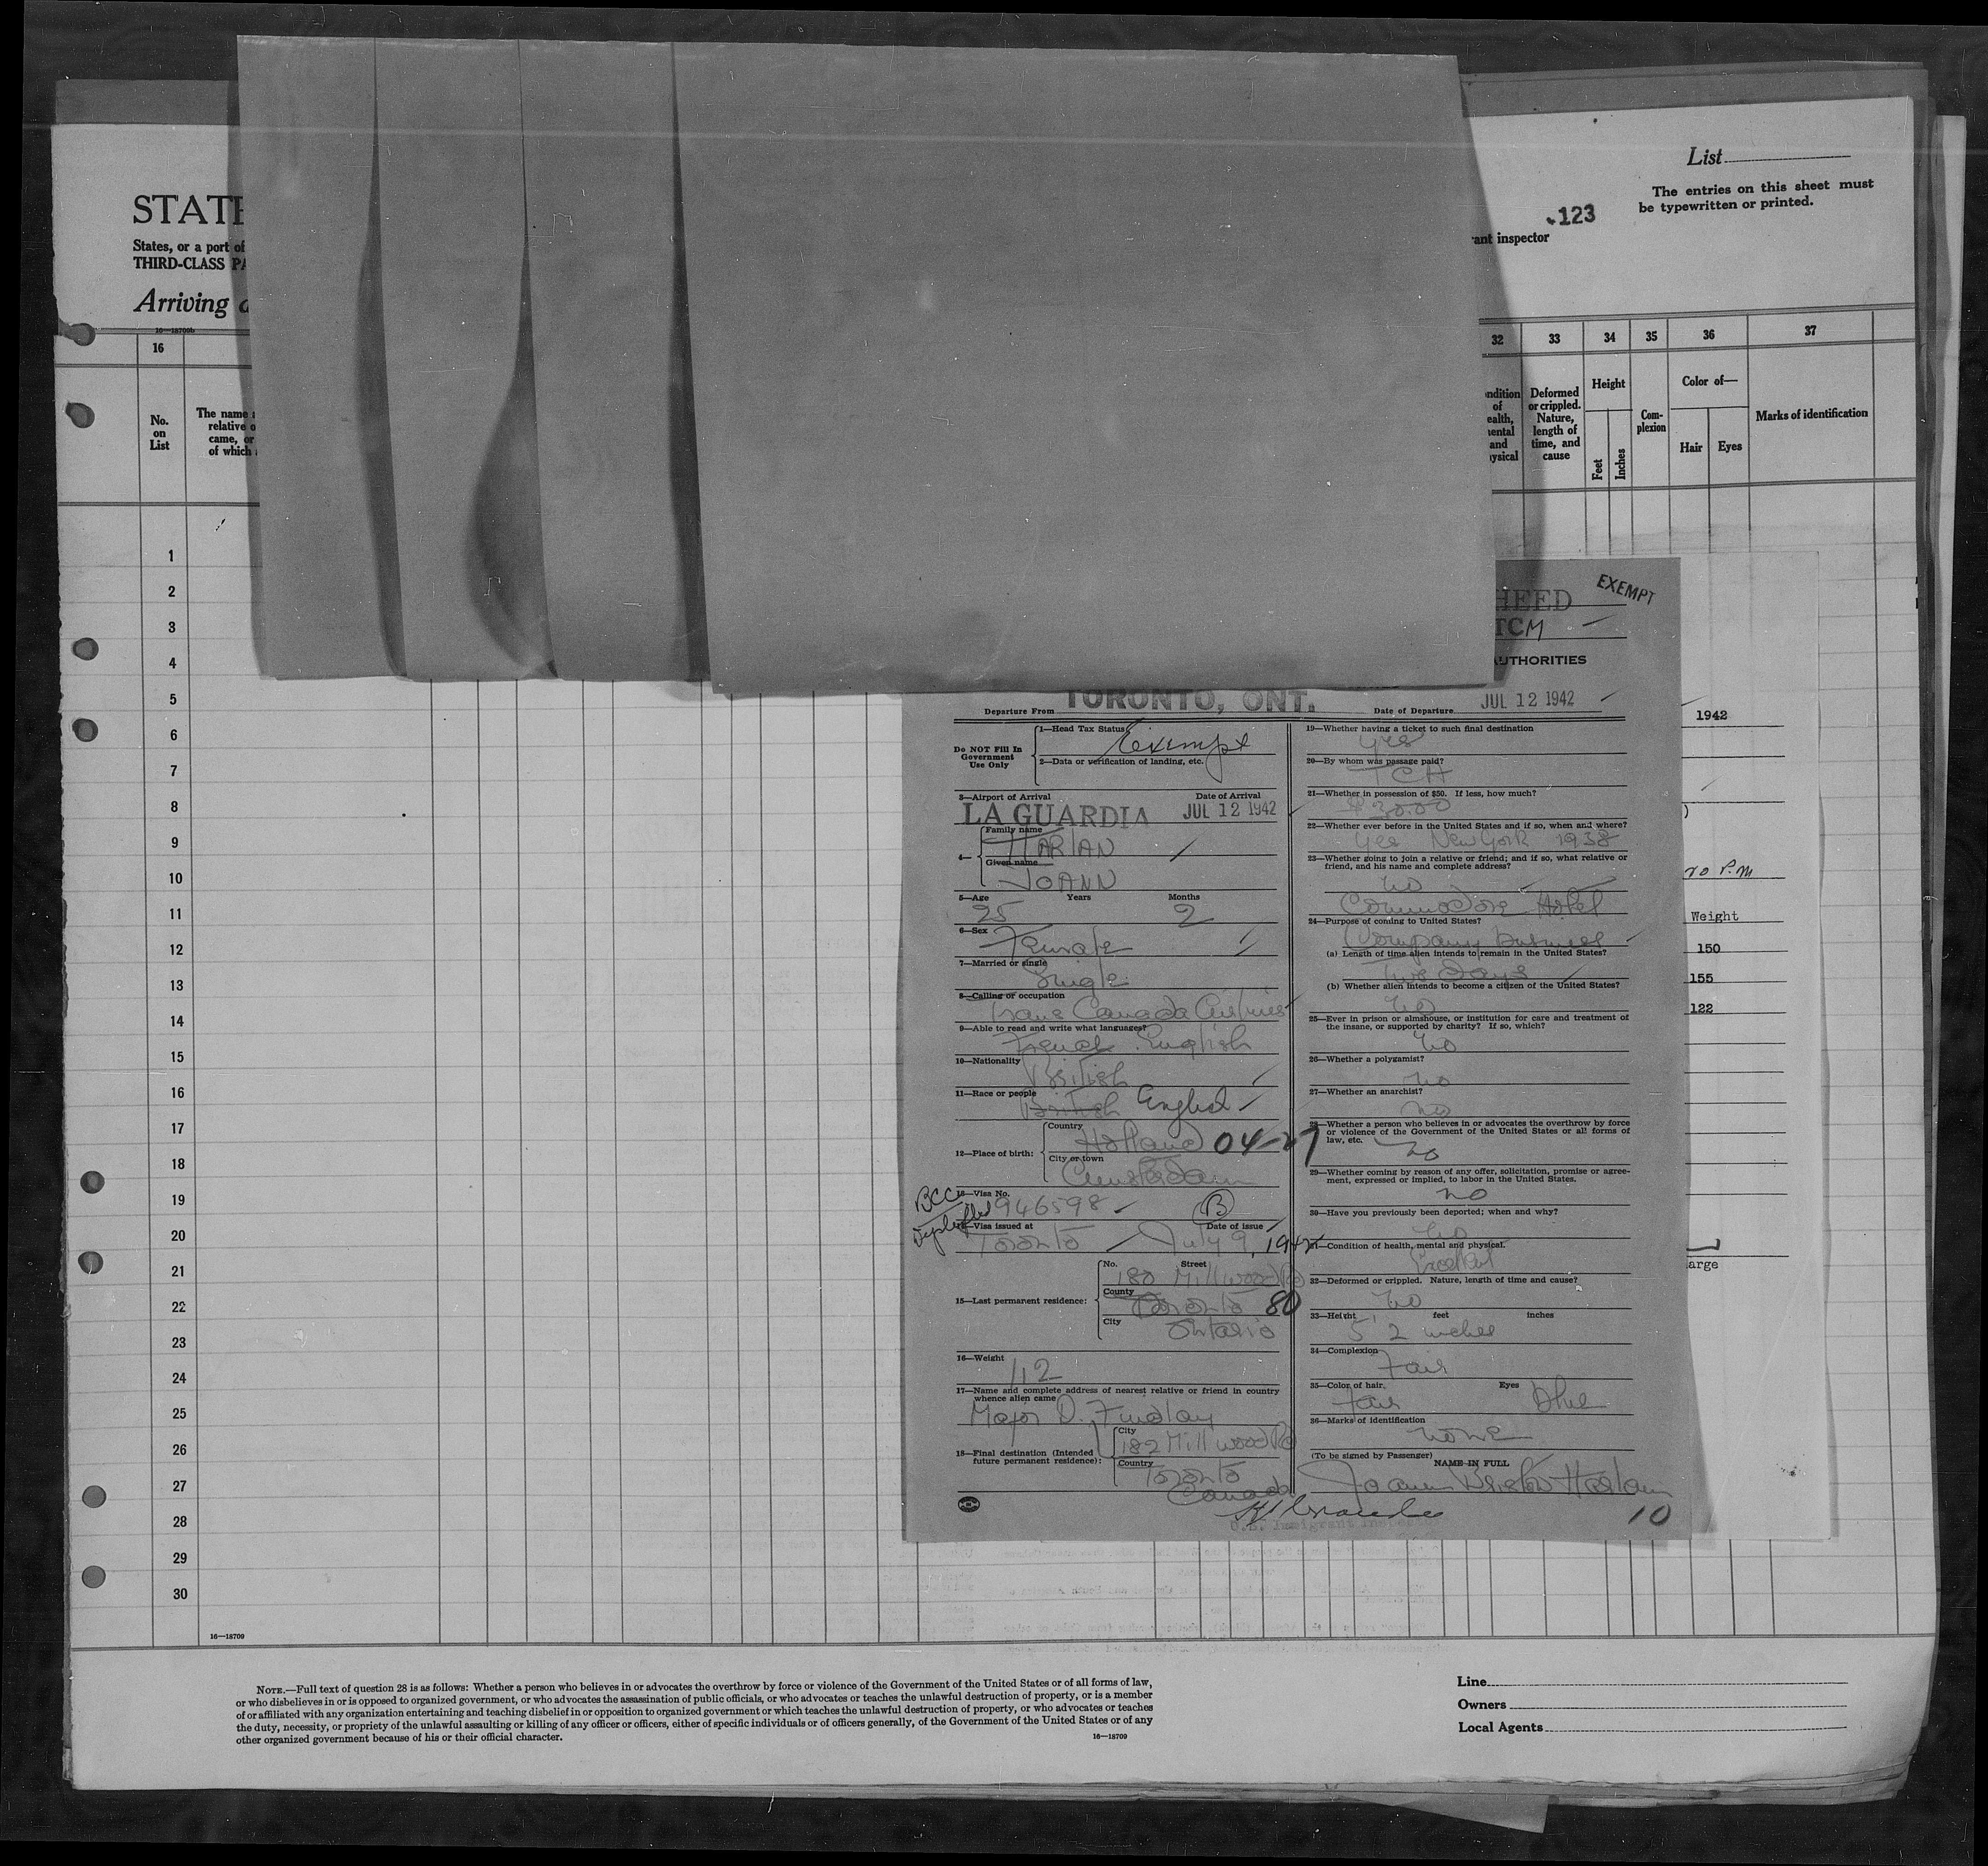 STATE
States, or a port of
THIRD-CLASS PA
Arriving a
16—18709b
List
The entries on this sheet must
be typewritten or printed.
123
ant inspector
16
32 33 34 35 36 37
No.
on
List
The name a
relative o
came, or
of which
ndition
of
ealth,
ental
and
ysical
Deformed
or crippled.
Nature,
length of
time, and
cause
Height
Feet
Inches
Com-
plexion
Color of—
Hair
Eyes
Marks of identification
1
2
3
4
5
6
7
8
9
10
11
12
13
14
15
16
17
18
19
20
21
22
23
24
25
26
27
28
29
30
16—18709
HEED
EXEMPT
TCM
UTHORITIES
Departure From TORONTO, ONT.
Date of Departure JUL 12 1942
Do NOT Fill In
Government
Use Only
1—Head Tax Status
Exempt
2—Data or verification of landing, etc.
3—Airport of Arrival
Date of Arrival
LA GUARDIA JUL 12 1942
4—
Family name
HARLAN
Given name
JOANN
5—Age Years Months
25 2
6—Sex
Female
7—Married or single
Single
8—Calling or occupation
Trans Canada Airlines
9—Able to read and write what languages?
French English
10—Nationality
British
11—Race or people
British English
12—Place of birth:
Country
Holland 04-27
City or town
Amsterdam
BCC
13—Visa No.
946598 B
14—Visa issued at
Date of issue
Toronto July 9, 1942
15—Last permanent residence:
No. Street
180 Millwood Rd
County
Toronto 80
City
Ontario
16—Weight
112
17—Name and complete address of nearest relative or friend in country
whence alien came
Major D. Findlay
18—Final destination (Intended
future permanent residence):
City
182 Millwood Rd
Country
Toronto
Canada
19—Whether having a ticket to such final destination
yes
20—By whom was passage paid?
TCA
21—Whether in possession of $50. If less, how much?
$30.00
22—Whether ever before in the United States and if so, when and where?
Yes New York 1938
23—Whether going to join a relative or friend; and if so, what relative or
friend, and his name and complete address?
no
Commodore Hotel
24—Purpose of coming to United States?
Company business
(a) Length of time alien intends to remain in the United States?
Two Days
(b) Whether alien intends to become a citizen of the United States?
no
25—Ever in prison or almshouse, or institution for care and treatment of
the insane, or supported by charity? If so, which?
no
26—Whether a polygamist?
no
27—Whether an anarchist?
no
28—Whether a person who believes in or advocates the overthrow by force
or violence of the Government of the United States or all forms of
law, etc.
no
29—Whether coming by reason of any offer, solicitation, promise or agree-
ment, expressed or implied, to labor in the United States.
no
30—Have you previously been deported; when and why?
no
31—Condition of health, mental and physical.
Excellent
32—Deformed or crippled. Nature, length of time and cause?
no
33—Height feet inches
5' 2 inches
34—Complexion
Fair
35—Color of hair Eyes
Fair blue
36—Marks of identification
none
(To be signed by Passenger)
NAME IN FULL
10
U.S. Immigrant
1942
P.M
Weight
150
155
122
arge
NOTE.—Full text of question 28 is as follows: Whether a person who believes in or advocates the overthrow by force or violence of the Government of the United States or of all forms of law,
or who disbelieves in or is opposed to organized government, or who advocates the assassination of public officials, or who advocates or teaches the unlawful destruction of property, or is a member
of or affiliated with any organization entertaining and teaching disbelief in or opposition to organized government or which teaches the unlawful destruction of property, or who advocates or teaches
the duty, necessity, or propriety of the unlawful assaulting or killing of any officer or officers, either of specific individuals or of officers generally, of the Government of the United States or of any
other organized government because of his or their official character.
16—18709
Line
Owners
Local Agents